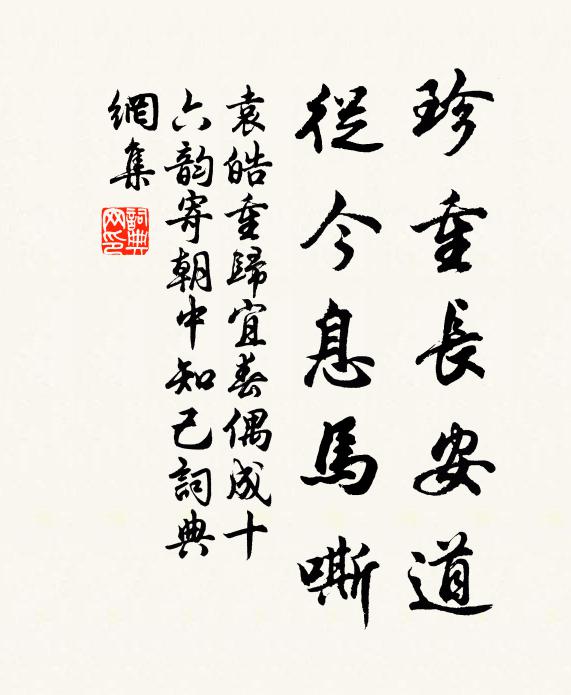 珍重長安道
從今息馬嘶
袁皓重歸宜春偶成十
六韵寄朝中知己詞典
網集
詞典网印